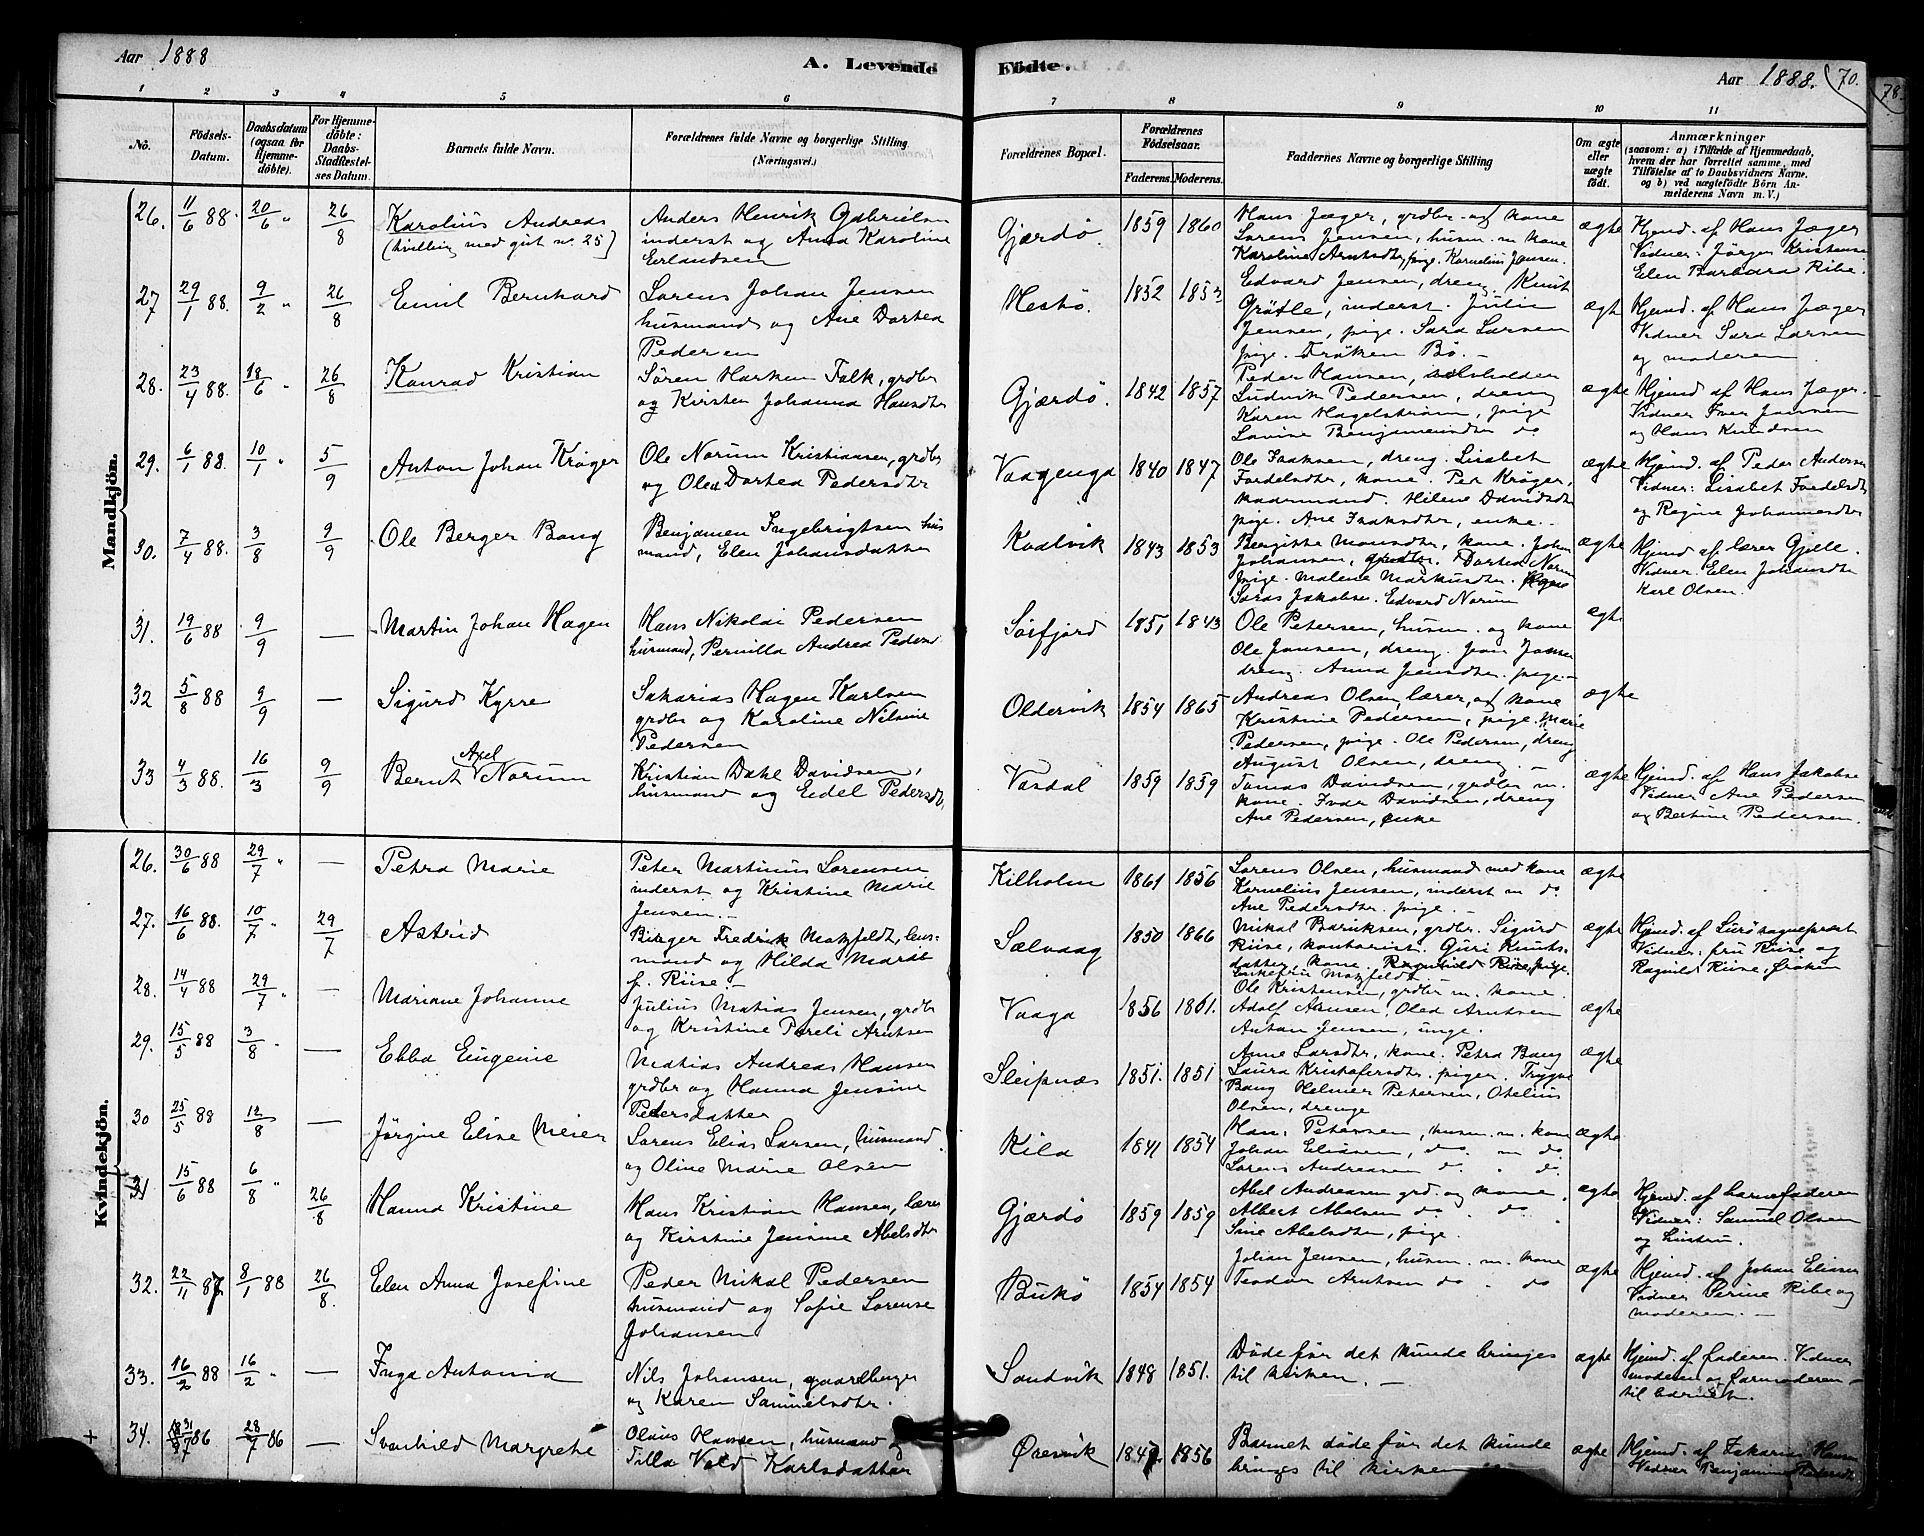 Aar 1888
A. Levende Födte.
Aar 1888. 70.
78.
1 2 3 4 5 6 7 8 9 10 11
No.
Födsels-Datum.
Daabsdatum (ogsaa for Hjemmedöbte).
For Hjemmedöbte: Daabs-Stadfæstelses Datum.
Barnets fulde Navn.
Forældrenes fulde Navne og borgerlige Stilling (Næringsvei.)
Forældrenes Bopæl.
Forældrenes Födselsaar.
Faderens. Moderens.
Faddernes Navne og borgerlige Stilling
Om ægte eller uægte födt.
Anmærkninger
(saasom: a) i Tilfælde af Hjemmedaab, hvem der har forrettet samme, med Tilföielse af to Daabsvidners Navne, og b) ved uægtefödte Börn Anmelderens Navn m. V.)
Mandkjön.
26. 11/6 88. 20/6 " 26/8 Karolius Andreas (tvilling med gut n. 25) Anders Henrik Gabrielsen inderst og Anna Karoline Erlandsen Gjærdö. 1859 1860 Hans Jæger, grdbr. og kone Lorens Jensen, husm. m kone Karoline Arntsdtr, pige. Kornelius Jensen. ægte Hjemd. af Hans Jæger Vidner: Jörgen Kristensen Elen Barbara Ribe.
27 29/1 88. 9/2 " 26/8 Emil Bernhard Lorens Johan Jensen husmand og Ane Dortea Pedersen Hestö. 1852 1853 Edvard Jensen, dreng. Knut Grötle, inderst. Julie Jensen, pige. Sara Larsen pige. Fröken Bö. – ægte Hjemd. af Hans Jæger Vidner Sara Larsen og moderen
28. 23/4 88. 18/6 " 26/8 Konrad Kristian Sören Harken Falk, grdbr og Kirsten Johanna Hansdtr Gjærdö. 1842 1857 Peder Hansen, Ludvik Pedersen, dreng Karen Hagelström, pige Lovise Benjaminsdtr do ægte Hjemd af Hans Jæger. Vidner Iver Jensen og Hans Knudsen
29. 6/1 88. 10/1 " 5/9 Anton Johan Kröger Ole Norum Kristiansen, grdbr og Olea Dortea Pedersdtr Vaagenga 1840 1847 Ole Isaksen, dreng. Lisabet Fordelsdtr, kone. Per Kröger, Hilene Davidsdtr pige. Ane Isaksdtr, enke. ægte Hjemd. af Peder Andersen Vidner: Lisabet Fordelsdtr og Regine Johannesdtr
30. 7/4 88. 3/8 9/9 Ole Berger Bang Benjamen Ingebrigtsen husmand, Elen Johansdatter Kvalvik 1843 1853 Bergitte Monsdtr, kone. Johan Johansen, grdbr. Dortea Norum pige. Malene Markusdtr. Saras Jakobsen. Edvard Norum ægte Hjemd af lærer Gjele. Vidner. Elen Johansdtr Karl Olsen.
31. 19/6 88 9/9 — Martin Johan Hagen Hans Nikolai Pedersen husmand, Pernilla Andrea Peders Sörfjord 1851 1843 Ole Petersen, husm. og kone Ole Jansen, dreng. Jon Jansen dreng. Anna Jensdtr. pige. – ægte
32 5/8 88 9/9 — Sigurd Kyrre Sakarias Hagen Karlsen grdbr og Karoline Nilsine Pedersen Oldervik 1854 1865 Andreas Olsen lærer, og kone Kristine Pedersen, pige. Marie Pedersen, pige. Ole Pedersen, dreng August Olsen, dreng. – ægte
33 4/3 88. 16/3 9/9 Bernt Axel Norum Kristian Dahl Davidsen, husmand og Eidel Pedersdtr, Vasdal 1859 1859 Tomas Davidsen, grdbr m. kone. Ivar Davidsen, dreng Ane Pedersen, enke ægte Hjemd. af Hans Jakobsen Vidner Ane Pedersen og Bertine Pedersen.
Kvindekjön.
26. 30/6 88 29/7 " — Petra Marie Peter Martinus Lorensen inderst og Kristine Marie Jensen. – Kilholm 1861 1856 Lorens Olsen, husmand med kone Kornelius Jensen, inderst m do Ane Pedersdtr. pige. – ægte
27. 16/6 88. 10/7 " 29/7 Astrid Birger Fredrik Motzfeldt, lensmand og Hilda Marat f. Riise. – Selvaag 1850 1866 Mikal Barniksen, grdbr. Sigurd Riise, kontorist. Guri Knutsdatter, kone. Ragnhild Riise, pige. Enkefru Motzfeldt ægte Hjemd. af Lurö sogneprest Vidner: fru Riise og Ragnild Riise, fröken
28. 14/4 88 29/7 " — Mariane Johanne Julius Matias Jensen, grdbr og Kristine Pareli Arntsen Vaaga 1856 1861. Ole Kristensen, grdbr m. kone. Adolf Arntsen, Olea Arntsen Anton Jensen, unge. ægte
29. 15/5 88 3/8 " — Ebba Eugenie Mathias Andreas Hansen grdbr og Hanna Jensine Pedersdatter Sleipnæs 1851. 1851 Anne Larsdtr, kone. Petra Bang Laura Kristofersdtr. piger. Trygve Bang Helmer Petersen, Otelius Olsen, drenge ægte
30 25/5 88 12/8 — Jörgine Elise Meier Lorens Elias Larsen, husmand og Oline Marie Olsen Kila 1841 1854 Hans Petersen, husm. m. kone Johan Eliasen, do. m do Lorens Andreasen do " do ægte
31 15/6 88 6/8 " 26/8 Hanna Kristine Hans Kristian Hansen, lærer og Kirstine Jensine Abelsdtr Gjærdö 1859 1859 Abel Andreasen grd. og kone. Albert Abelsen do " do Sine Abelsdtr, pige. ægte Hjemd. af barnefaderen Vidner: Samuel Olsen og hustru.
32. 22/11 87 8/1 88 26/8. Elen Anna Josefine Peder Mikal Pedersen husmand og Sofie Lorense Johansen Bukö 1854 1854 Johan Jensen, husm. m. kone Teodor Arntsen do " do ægte Hjemd. af Johan Eliasen Vidner Serine Ribe og moderen. –
33. 16/2 88 16/2 " — Inga Antonia Nils Johansen, gaardbruger og Karen Samuelsdtr. Sandvik 1848 1851. Döde för det kunde bringes til kirken. – ægte Hjemd. af faderen. Vidner moderen og farmoderen til barnet.
34. 7 86 28/7 86 — Svanhild Margrete Olaus Hansen, husmand og Tilla Vold Karlsdatter Örevik 1847 1856 Barnet döde för det kunde bringes til kirken ægte Hjemd. af Zakarias Hansen Vidner Benjamine Pedersdtr